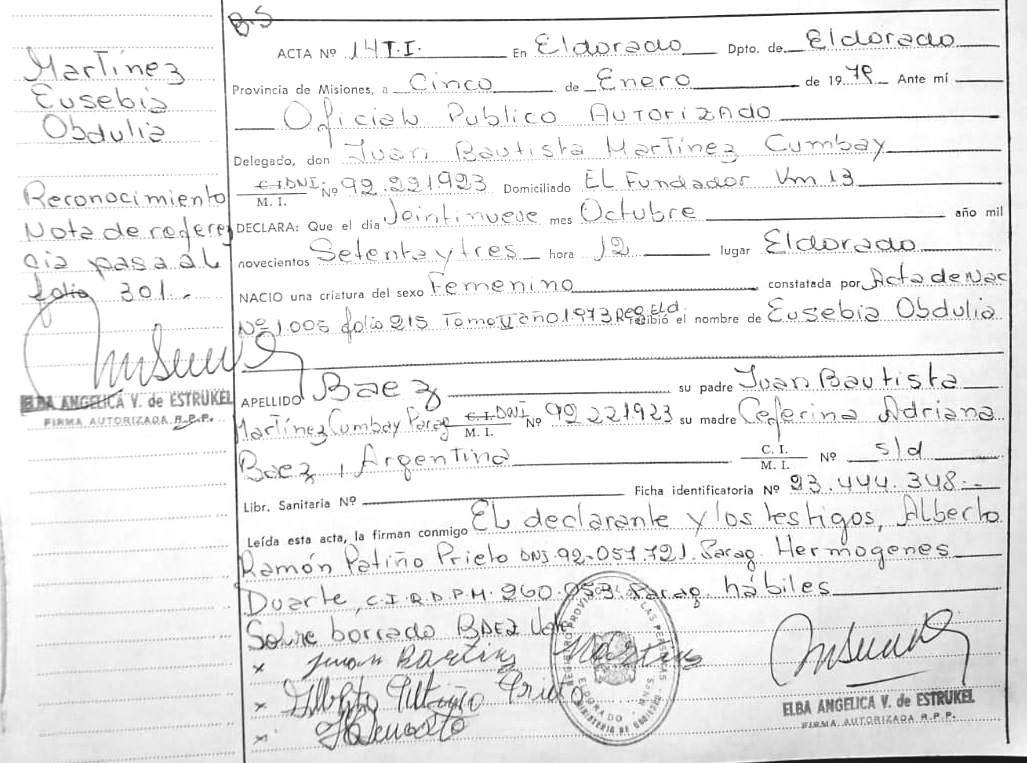 B.S
Martínez
Eusebia
Obdulia
Reconocimiento
Nota de referen
cia pasa al
folio 301.-
ELBA ANGELICA V. de ESTRUKEL
FIRMA AUTORIZADA R.P.P.
ACTA Nº 14 T.I. En Eldorado Dpto. de Eldorado
Provincia de Misiones, a Cinco de Enero de 19 Ante mí
Oficial Publico Autorizado
Delegado, don Juan Bautista Martínez Cumbay
C.I. DNI M. I. Nº 92.221923 Domiciliado EL Fundador Km 13
DECLARA: Que el día Veintinueve mes Octubre año mil
novecientos Setenta y tres hora 12 lugar Eldorado
NACIO una criatura del sexo Femenino constatada por Acta de Nac
Nº 1.005 folio 215 Tomo II año 1973 Reg. Eld. recibió el nombre de Eusebia Obdulia
APELLIDO Baez su padre Juan Bautista
Martínez Cumbay Parag C.I. DNI M. I. Nº 92 221923 su madre Ceferina Adriana
Baez, Argentina C. I. M. I. Nº s/d
Libr. Sanitaria Nº Ficha identificatoria Nº 93.444.348.-
Leída esta acta, la firman conmigo EL declarante y los testigos, Alberto
Ramón Patiño Prieto DNI. 92.057.721. Parag. Hermogenes
Duarte, C.I.R.D.P.M. 260.053. Parag. hábiles
Sobre borrado BAEZ Vale
x Juan Bautista Martinez
x Alberto Patiño Prieto
x HDuarte
ELBA ANGELICA V. de ESTRUKEL
FIRMA AUTORIZADA R.P.P.